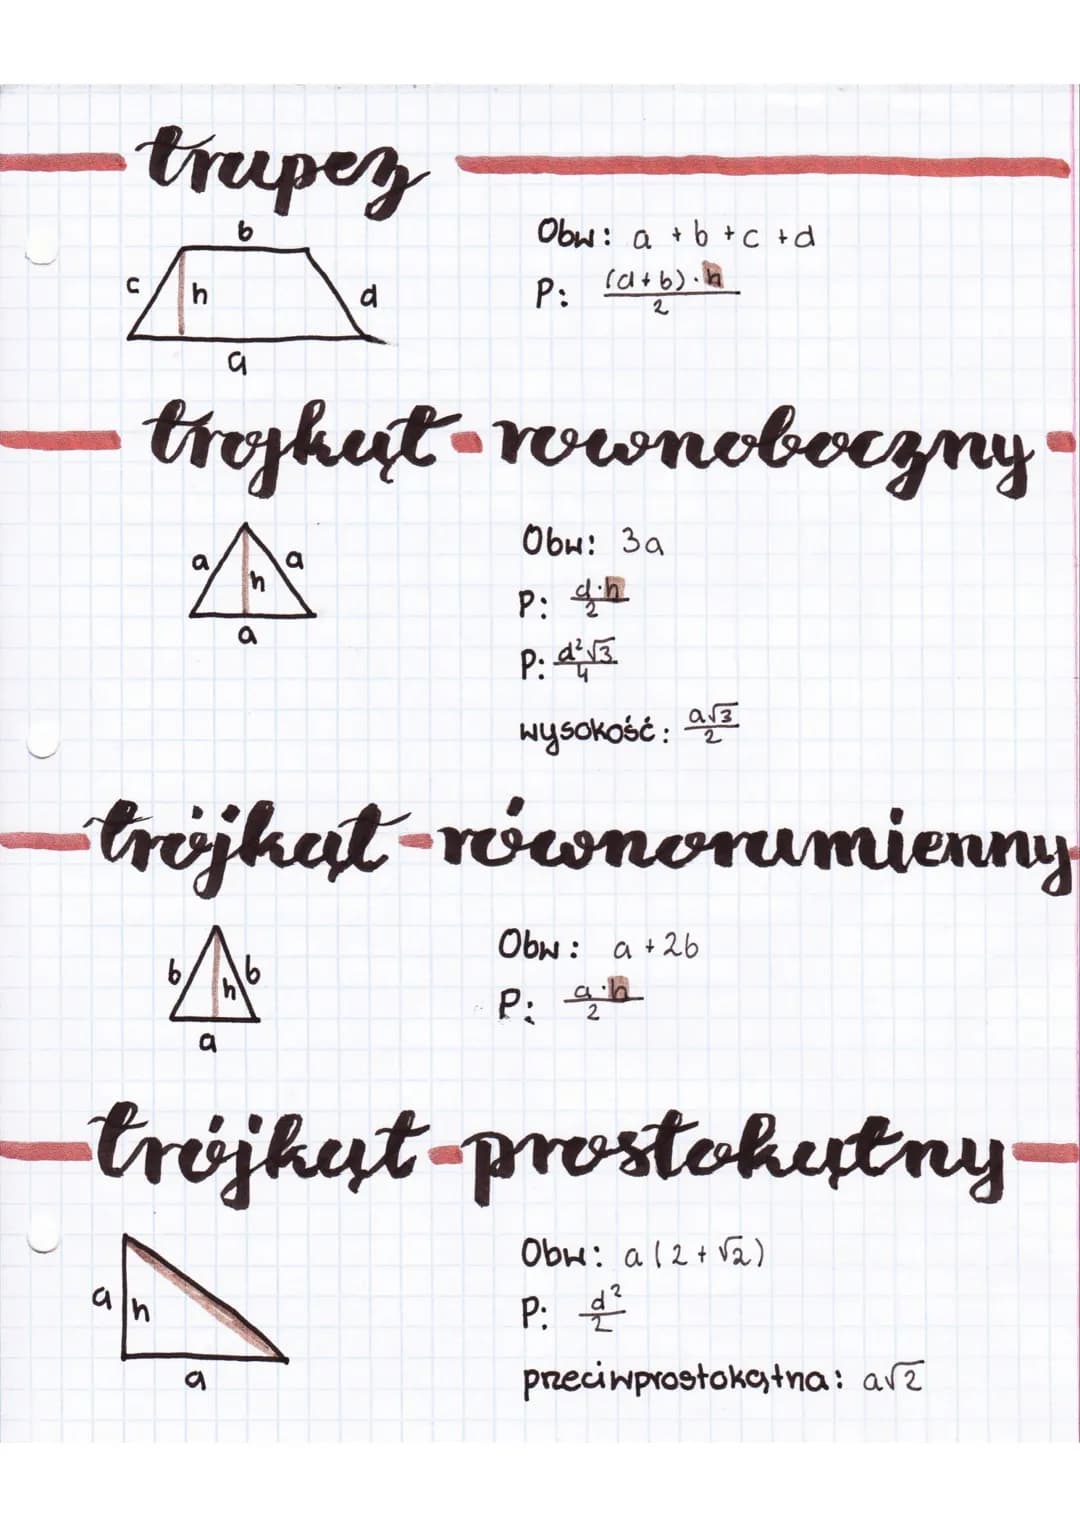 trapez
b
c h d
a
Obw: a + b + c + d
P: (a+b)·h
2
trojkąt rownoboczny
a a
h
a
Obw: 3a
P: a·h
2
P: a²√3
4
wysokość: a√3
2
trójkąt równoramienny
b h b
a
Obw: a + 2b
P: a·h
2
trójkąt prostokątny
a h
a
Obw: a(2+√2)
P: a²
2
przeciwprostokątna: a√2